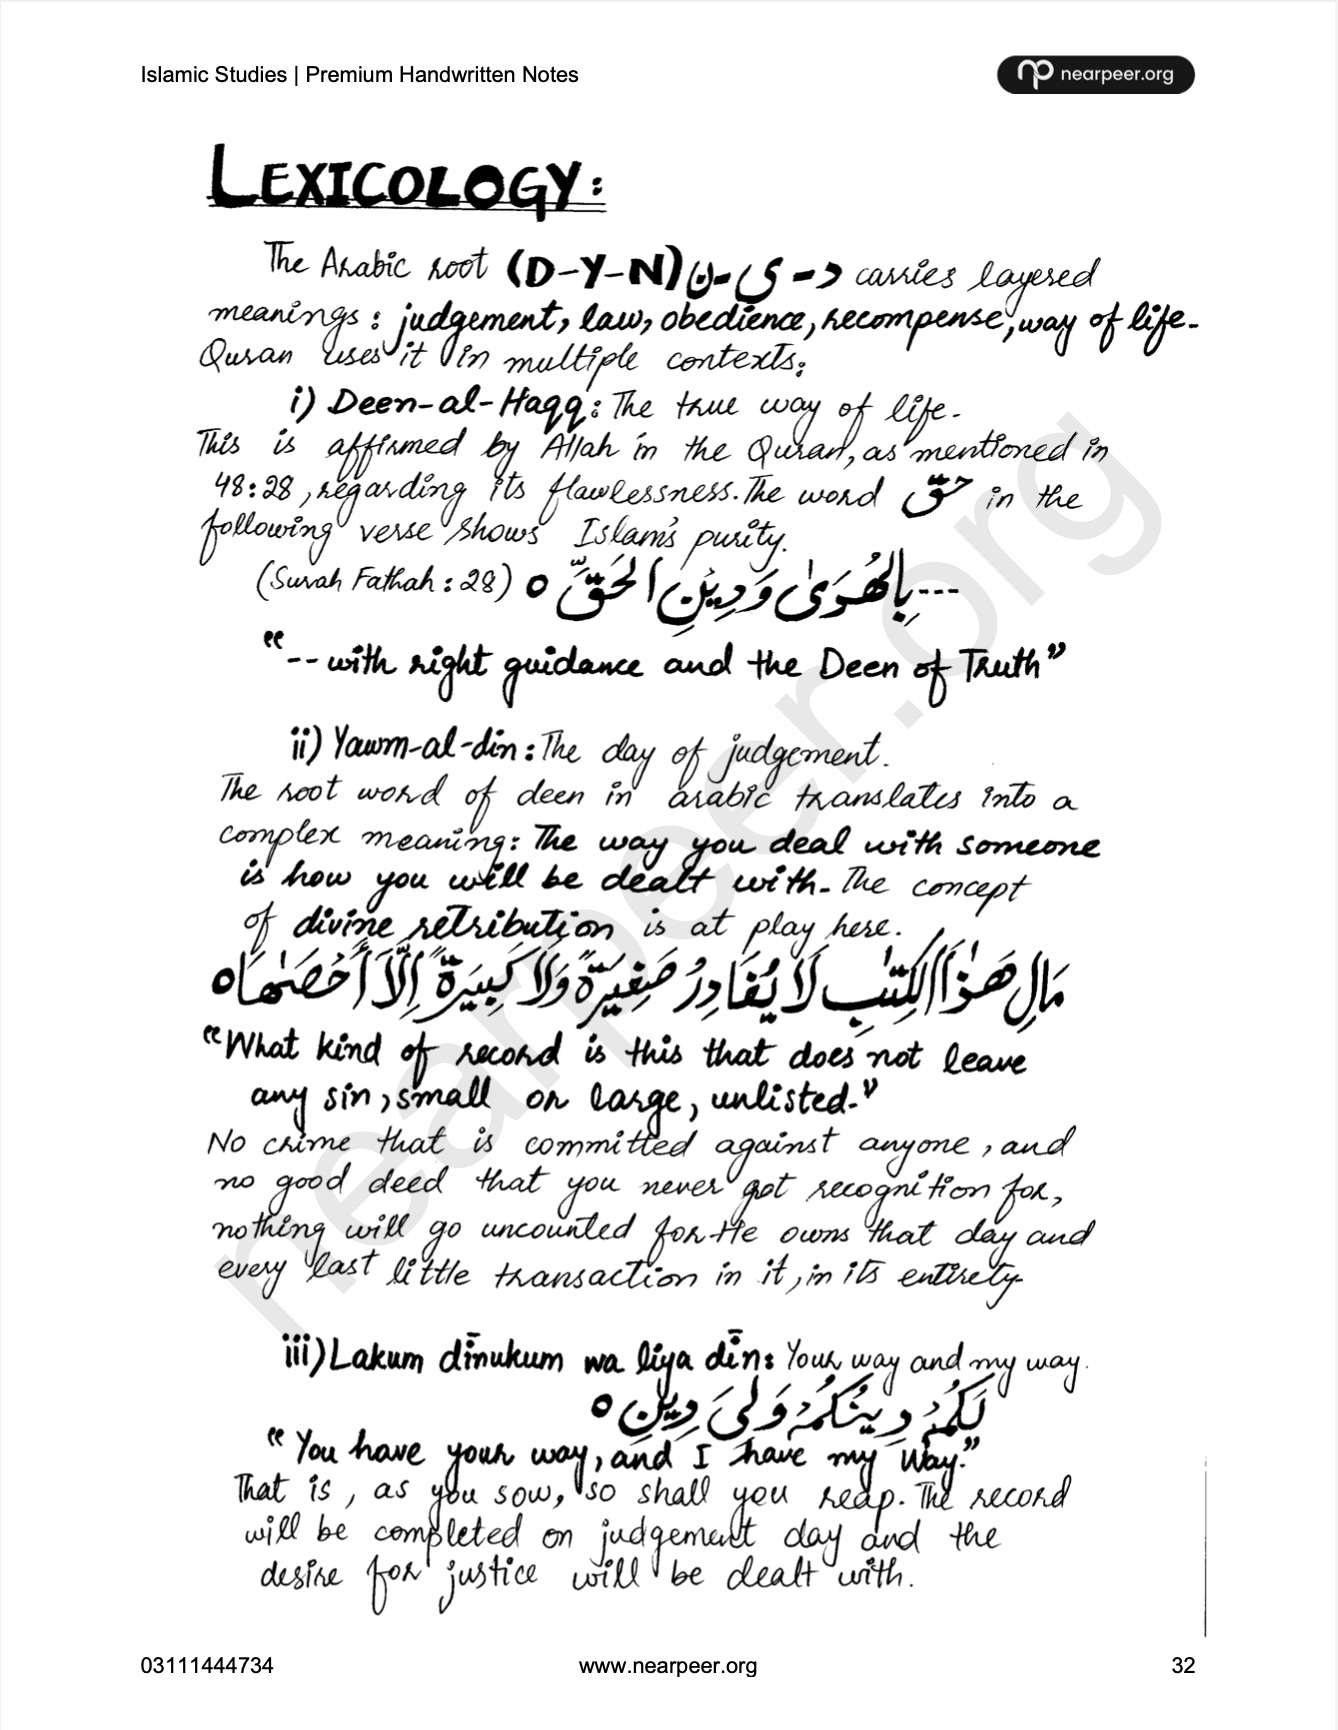 Islamic Studies | Premium Handwritten Notes
nearpeer.org
LEXICOLOGY:
The Arabic root (D-Y-N) د - ي - ن carries layered
meanings: judgement, law, obedience, recompense, way of life.
Quran uses it in multiple contexts:
i) Deen-al-Haqq: The true way of life.
This is affirmed by Allah in the Quran, as mentioned in
48:28, regarding its flawlessness. The word حَقّ in the
following verse shows Islam's purity.
(Surah Fathah : 28) ---بِالْهُدَىٰ وَدِيْنِ الْحَقِّ ه
“-- with right guidance and the Deen of Truth”
ii) Yawm-al-din: The day of judgement.
The root word of deen in arabic translates into a
complex meaning: The way you deal with someone
is how you will be dealt with. The concept
of divine retribution is at play here.
مَالِ هَـٰذَا الْكِتٰبِ لَا يُغَادِرُ صَغِيْرَةً وَّلَا كَبِيْرَةً اِلَّآ اَحْصٰىهَا ه
“What kind of record is this that does not leave
any sin, small or large, unlisted.”
No crime that is committed against anyone, and
no good deed that you never got recognition for,
nothing will go uncounted for. He owns that day and
every last little transaction in it, in its entirety.
iii) Lakum dīnukum wa liya dīn: Your way and my way.
لَكُمْ دِيْنُكُمْ وَلِيَ دِيْنِ ه
“You have your way, and I have my way.”
That is, as you sow, so shall you reap. The record
will be completed on judgement day and the
desire for justice will be dealt with.
nearpeer.org
03111444734
www.nearpeer.org
32